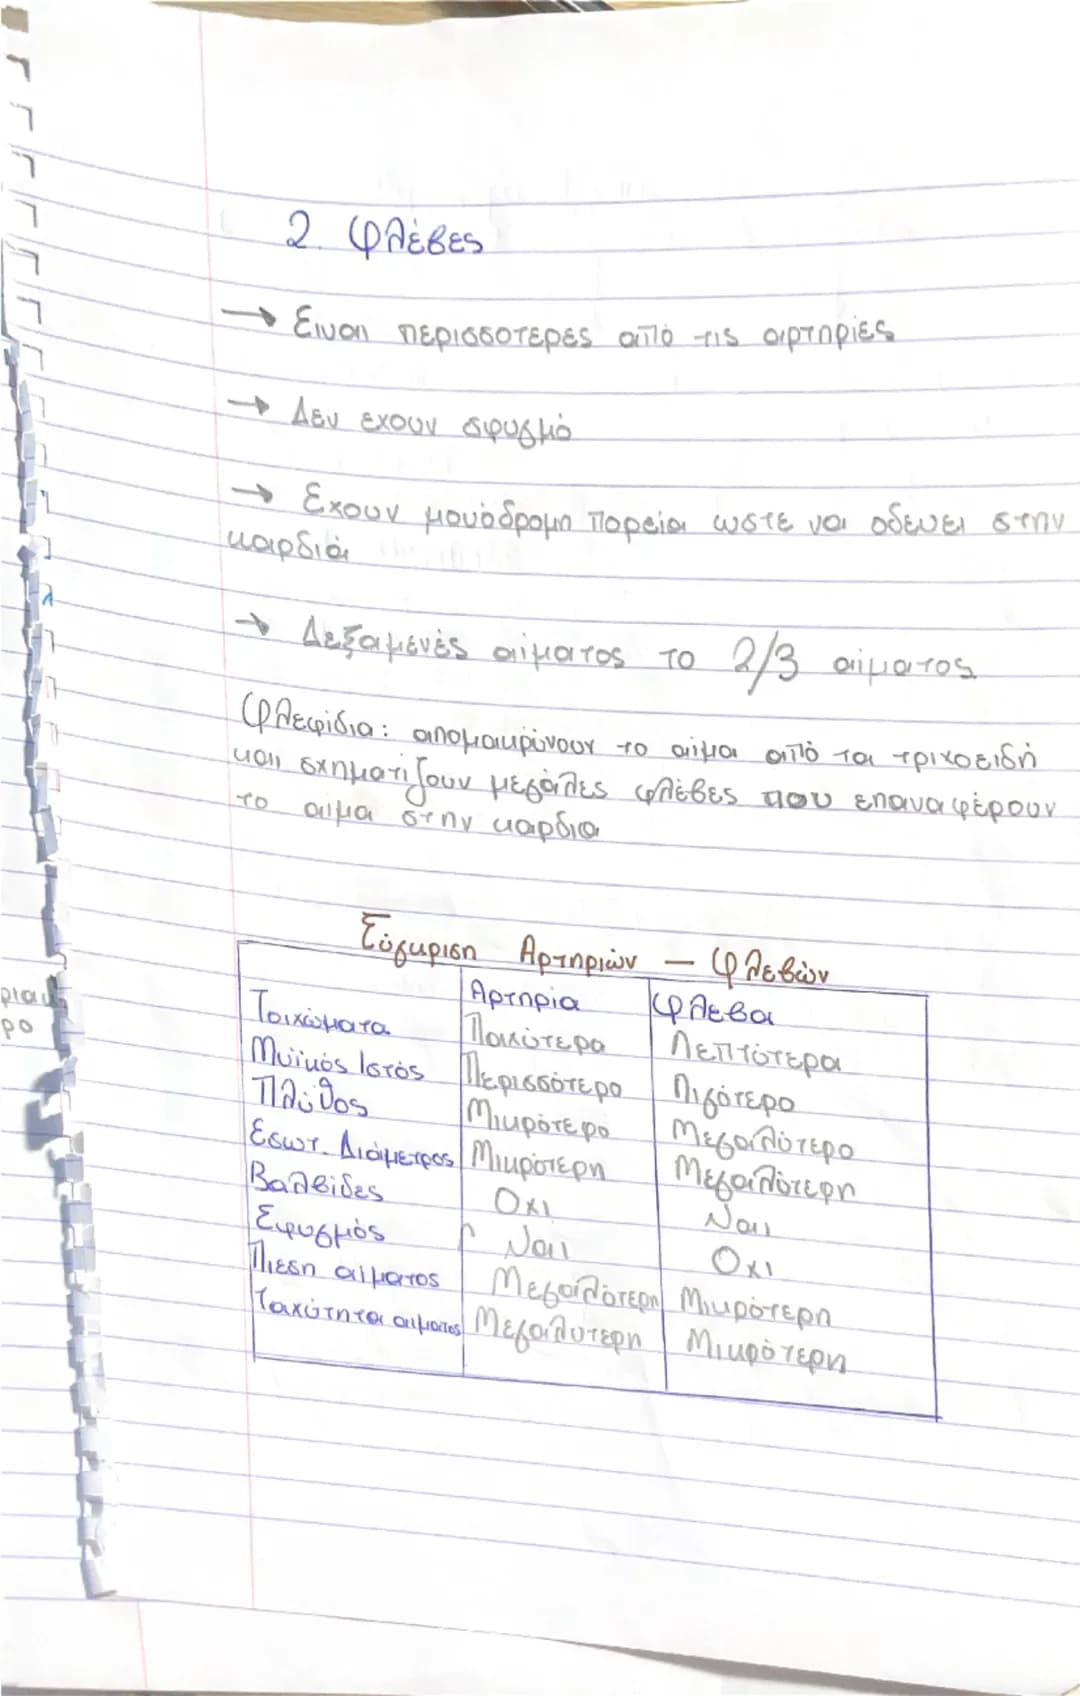 2. Φλέβες
→ Ειναι περισσοτερες από τις αρτηρίες
→ Δεν εχουν σφυσμό
→ Εχουν μονόδρομη πορεία ωστε να οδευει στην
καρδιά
→ Δεξαμενές αίματος το 2/3 αίματος
Φλεφίδια: απομακρύνουν το αίμα από τα τριχοειδή
και σχηματίζουν μεγάλες φλέβες που επαναφέρουν
το αίμα στην καρδια
Σύγκριση Αρτηριών - Φλεβών
Αρτηρία Φλεβα
Τοιχώματα Παχύτερα Λεπτότερα
Μϋικός Ιστός Περισσότερο Λιγότερο
Πλύθος Μικρότερο Μεγαλύτερο
Εσωτ. Διάμετρος Μικρότερη Μεγαλύτερη
Βαλβίδες Οχι Ναι
Σφυγμός Ναι Οχι
Πιεση αίματος Μεγαλύτερη Μικρότερη
Ταχύτητα αιματος Μεγαλυτερη Μικρότερη
ρια
ρο